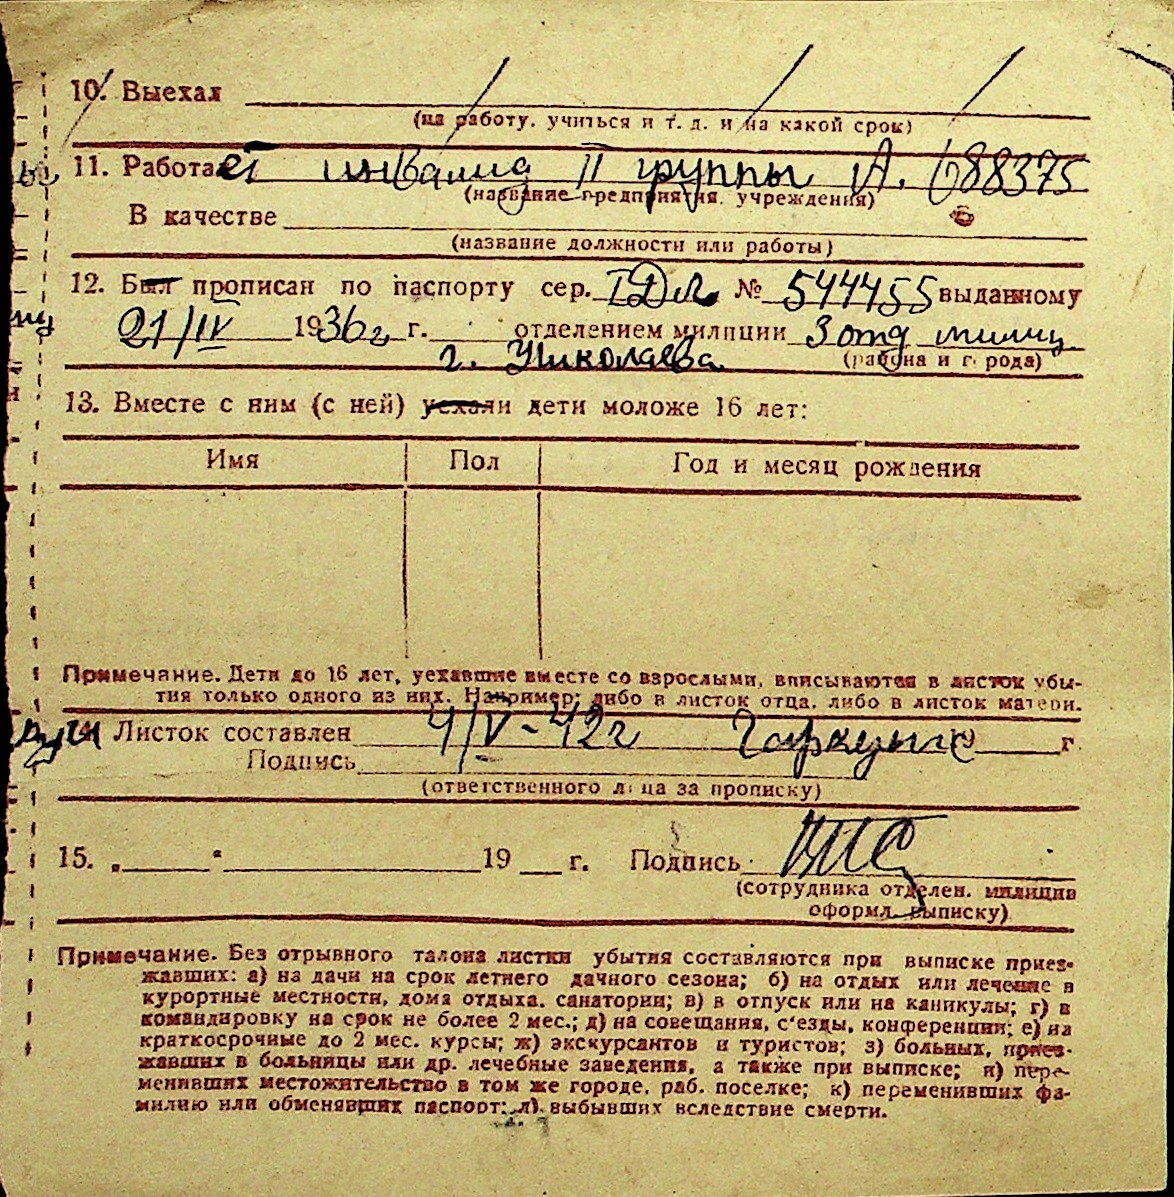 10. Выехал
(на работу, учиться и т. д. и на какой срок)
11. Работает инвалид II группы А. 688375
(название предприятия, учреждения)
В качестве
(название должности или работы)
12. Был прописан по паспорту сер. № 544455 выданному
21/IV 1936г г. отделением милиции 3 отд милиц.
г. Николаева (района и города)
13. Вместе с ним (с ней) уехали дети моложе 16 лет:
Имя Пол Год и месяц рождения
Примечание. Дети до 16 лет, уехавшие вместе со взрослыми, вписываются в листок убы-
тия только одного из них. Например: либо в листок отца, либо в листок матери.
Листок составлен 4/V-42г г.
Подпись
(ответственного лица за прописку)
15. „ “ 19 г. Подпись
(сотрудника отделен. милиции
оформл. выписку)
Примечание. Без отрывного талона листки убытия составляются при выписке приез-
жавших: а) на дачи на срок летнего дачного сезона; б) на отдых или лечение в
курортные местности, дома отдыха, санатории; в) в отпуск или на каникулы; г) в
командировку на срок не более 2 мес.; д) на совещания, с'езды, конференции; е) на
краткосрочные до 2 мес. курсы; ж) экскурсантов и туристов; з) больных, приез-
жавших в больницы или др. лечебные заведения, а также при выписке; и) пере-
менивших местожительство в том же городе, раб. поселке; к) переменивших фа-
милию или обменявших паспорт; л) выбывших вследствие смерти.